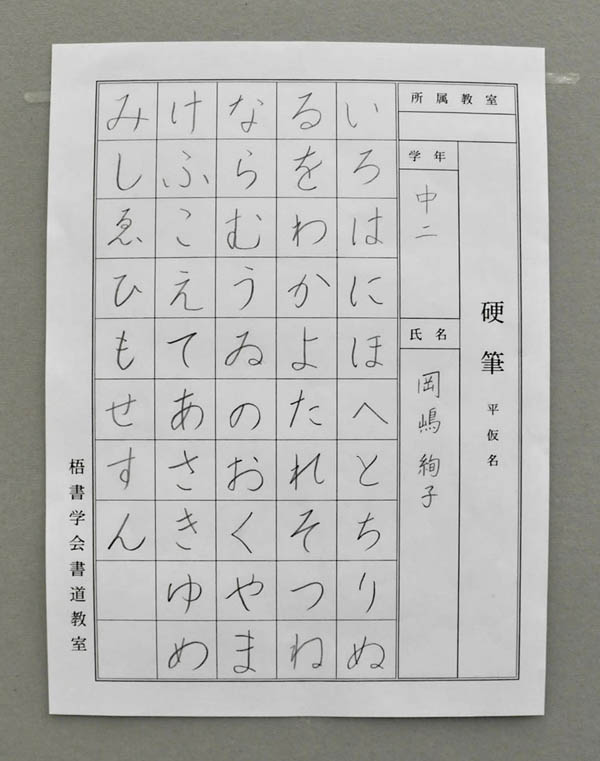 硬筆 平仮名
所属教室
学年
中二
氏名
岡嶋 絢子
いろはにほへとちりぬ
るをわかよたれそつね
ならむうゐのおくやま
けふこえてあさきゆめ
みしゑひもせすん
梧書学会書道教室